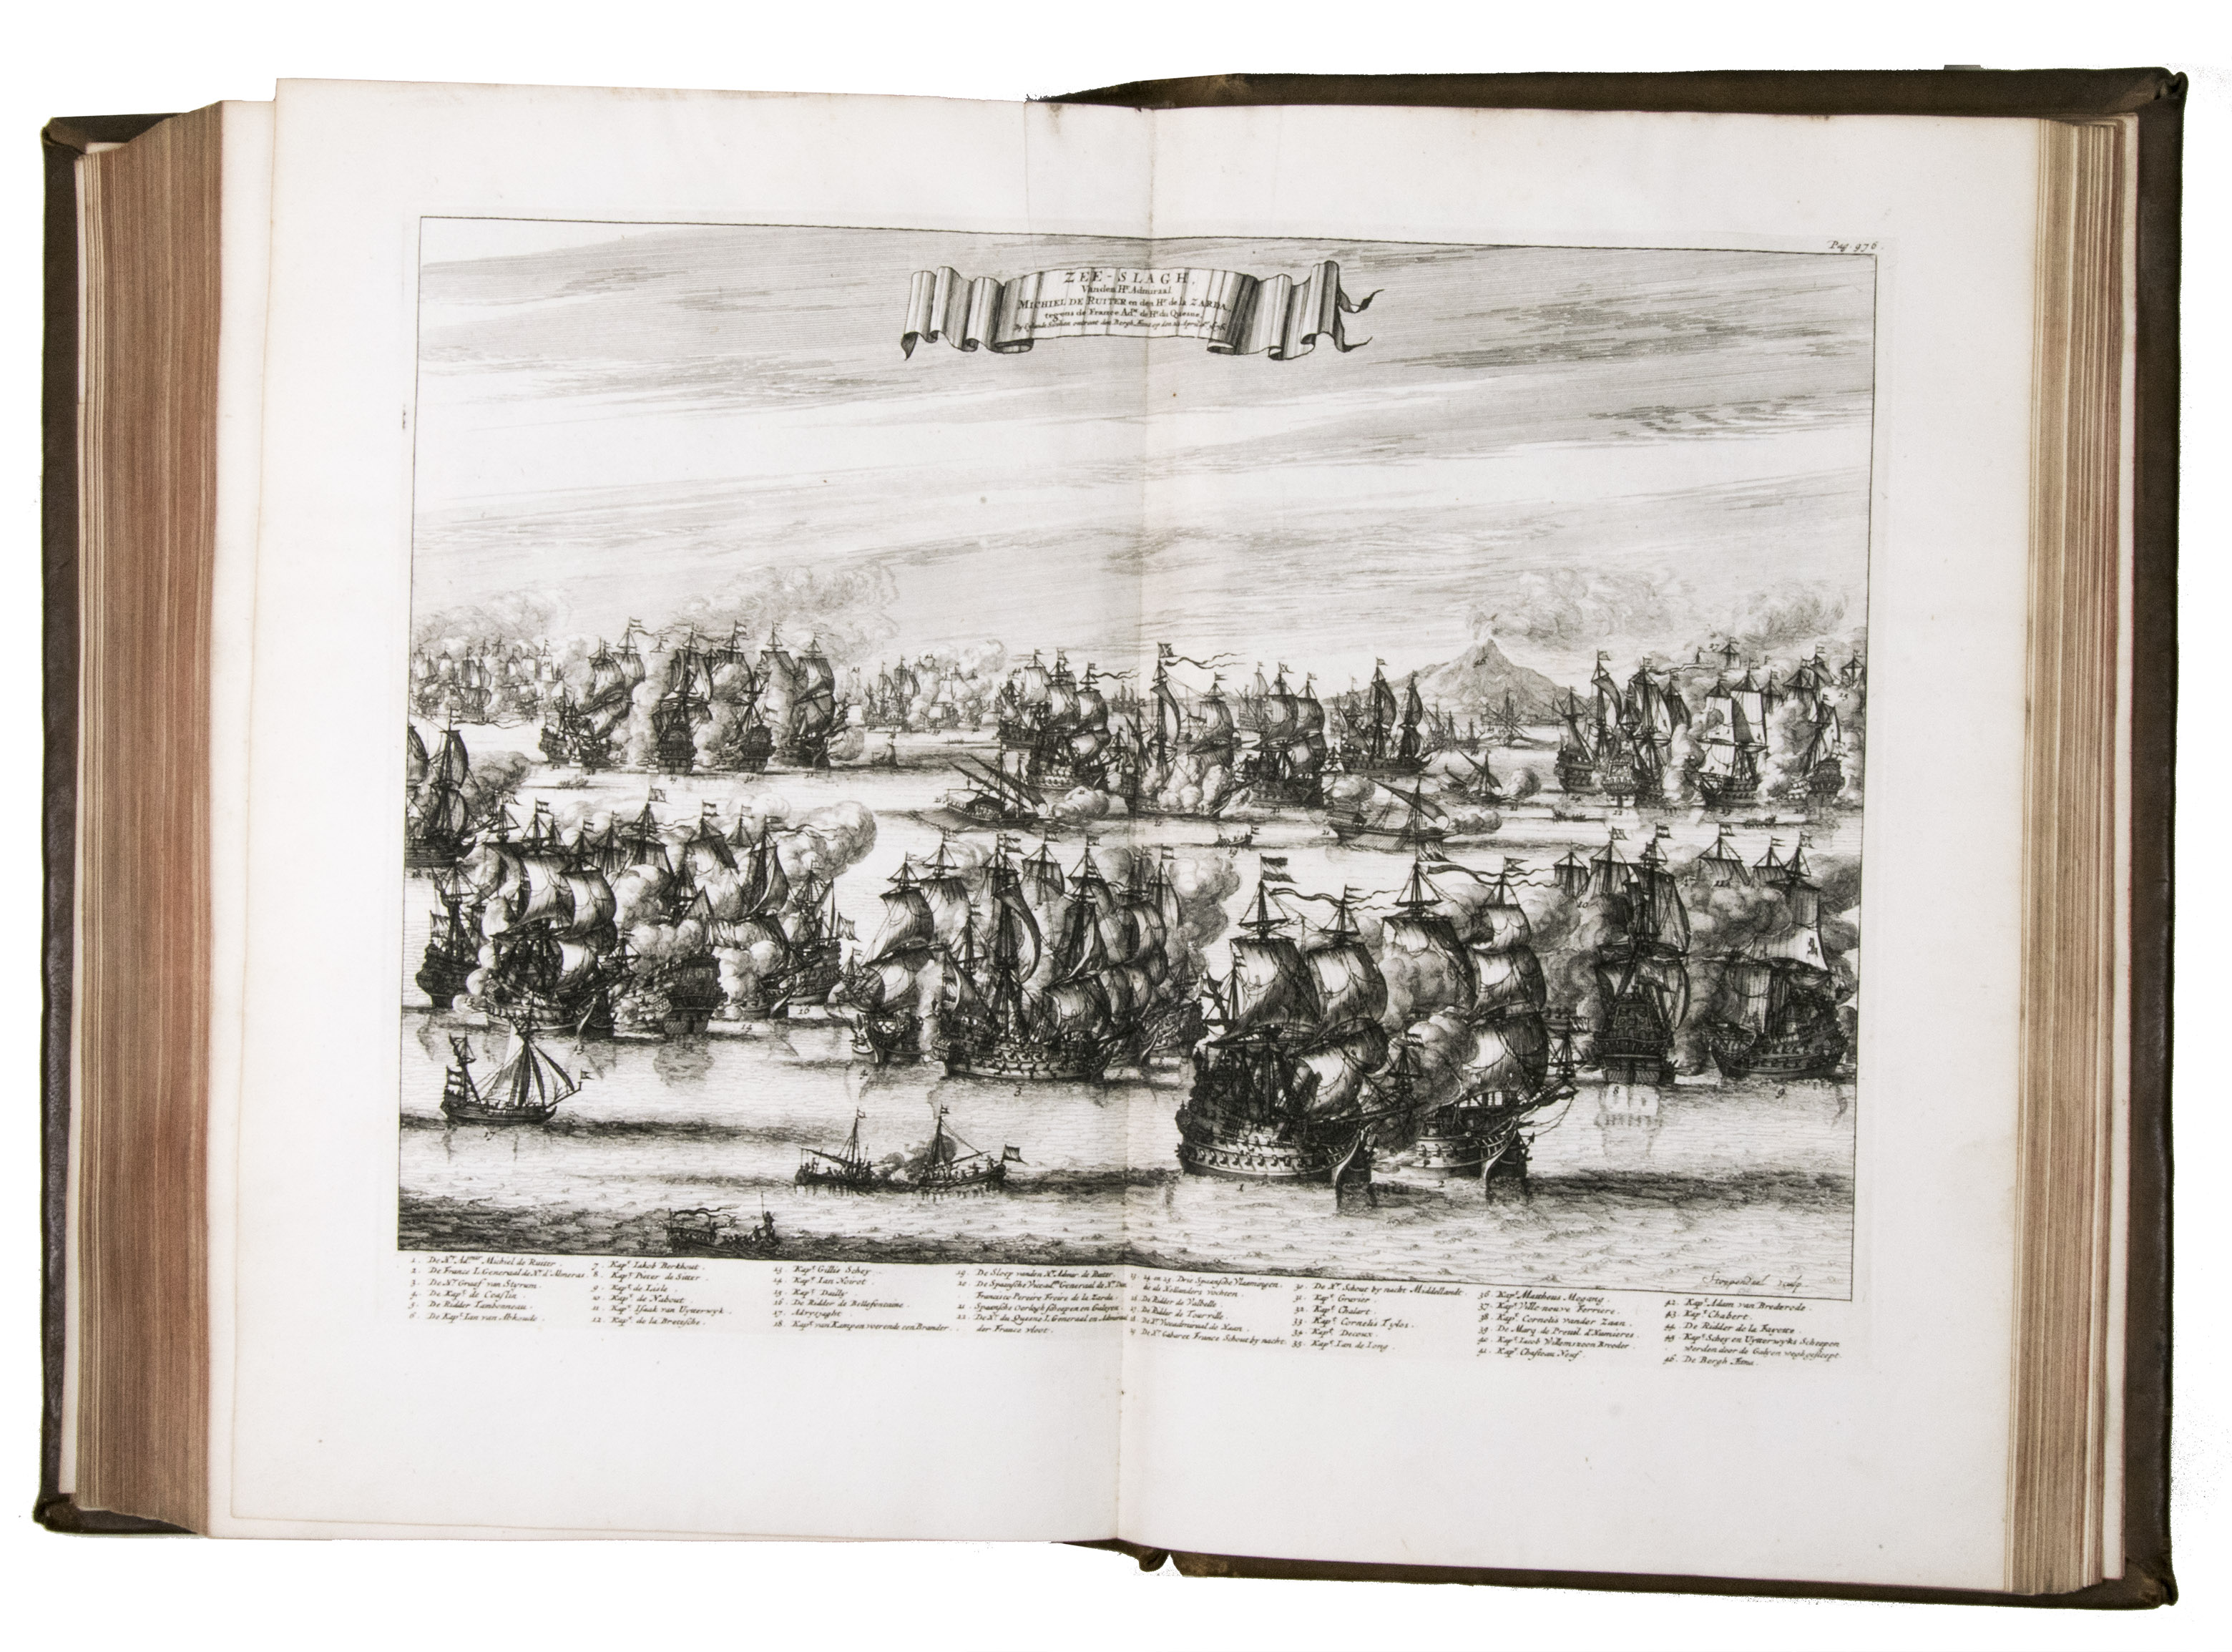 Pag. 976.
ZEE-SLAGH,
Van den Hr. Admiraal
MICHIEL DE RUITER en den Hr. de la ZARDA.
tegens de France Adm. de Hr. du Quesne,
1. De Hr. Admir. Michiel de Ruiter.
2. De France L. Generaal de Hr. d'Almeras.
3. De Hr. Graef van Styrum.
4. Kapt. de Coaslin.
5. De Ridder Tambonneau.
6. De Kapt. Ian van Abkoude.
7. Kapt. Iakob Berkhout.
8. Kapt. Pieter de Sitter.
9. Kapt. de Lisle.
10. Kapt. de Nabout.
11. Kapt. Isaak van Uytterwyk.
12. Kapt. de la Bretsche.
13. Kapt. Gillis Schey.
14. Kapt. Ian Noirot.
15. Kapt. Dailly
16. De Ridder de Bellefontaine.
17. Advysjaght.
18. Kapt. van Kampen voerende een Brander.
19. De Sloep vanden Hr. Admir. de Ruiter.
20. De Spaansche Vice-adml. Generaal de Hr. Don
Francisco Pereire Freire de la Zarda.
21. Spaansche Oorlogh scheepen en Galeyen.
22. De Hr. du Quesne L. Generaal en Admiraal
der France vloot.
23. 24 en 25. Drie Spaansche Vlaemingen.
die de Hollanders vochten.
26. De Ridder de Valbelle.
27. De Ridder de Tourville.
28. De Hr. Viceadmiraal de Haan.
29. De Hr. Gabaret France Schout by nacht.
30. De Hr. Schout by nacht Middellandt.
31. Kapt. Gravier.
32. Kapt. Chalart.
33. Kapt. Cornelis Tyloz.
34. Kapt. Decoux.
35. Kapt. Ian de Iong.
36. Kapt. Mattheus Megang.
37. Kapt. Ville-neuve Ferriere.
38. Kapt. Cornelis vander Zaan.
39. De Marq. de Preuil d'Humieres.
40. Kapt. Iacob Willemszoon Broeder.
41. Kapt. Chasteau Neuf.
42. Kapt. Adam van Brederode.
43. Kapt. Chabert.
44. De Ridder de la Fayette.
45. Kapt. Schey en Uytterwyks Scheepen
werden door de Galyen weghgesleept.
46. De Bergh Etna.